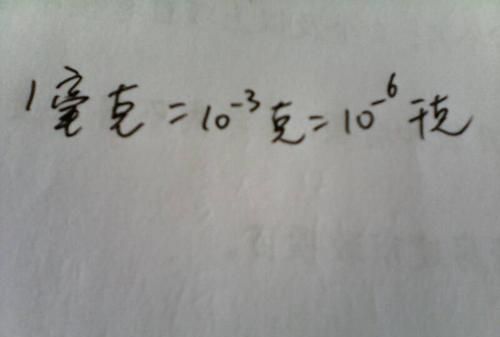 1毫克=10⁻³克=10⁻⁶千克